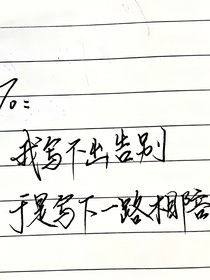 To:
我写不出告别
于是写下一路相陪